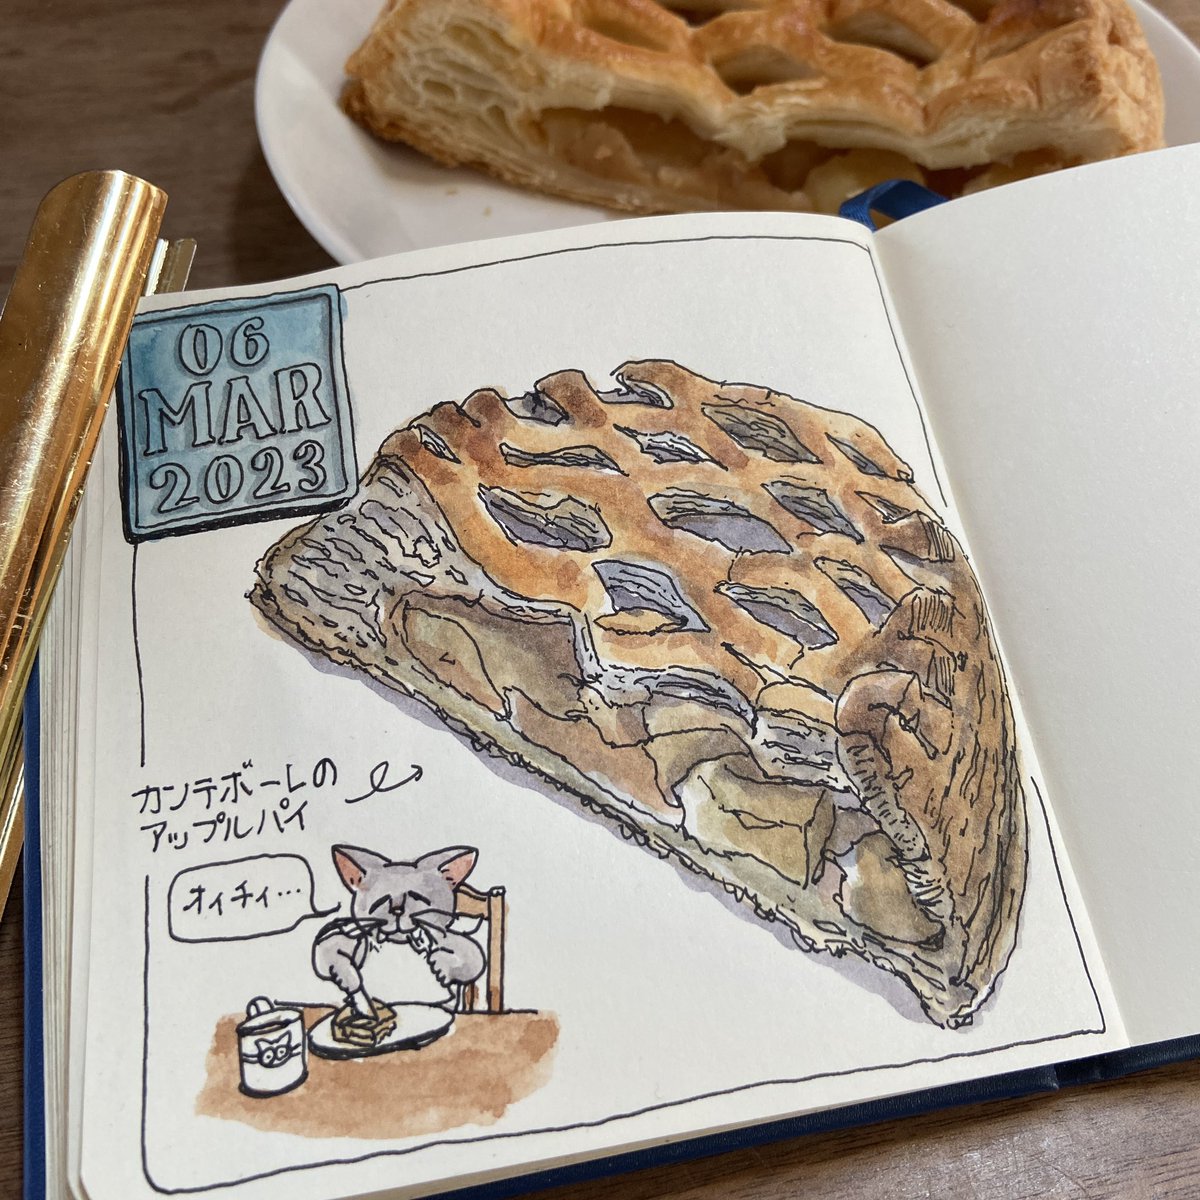 06
MAR
2023
カンテボーレの
アップルパイ
オイチィ…